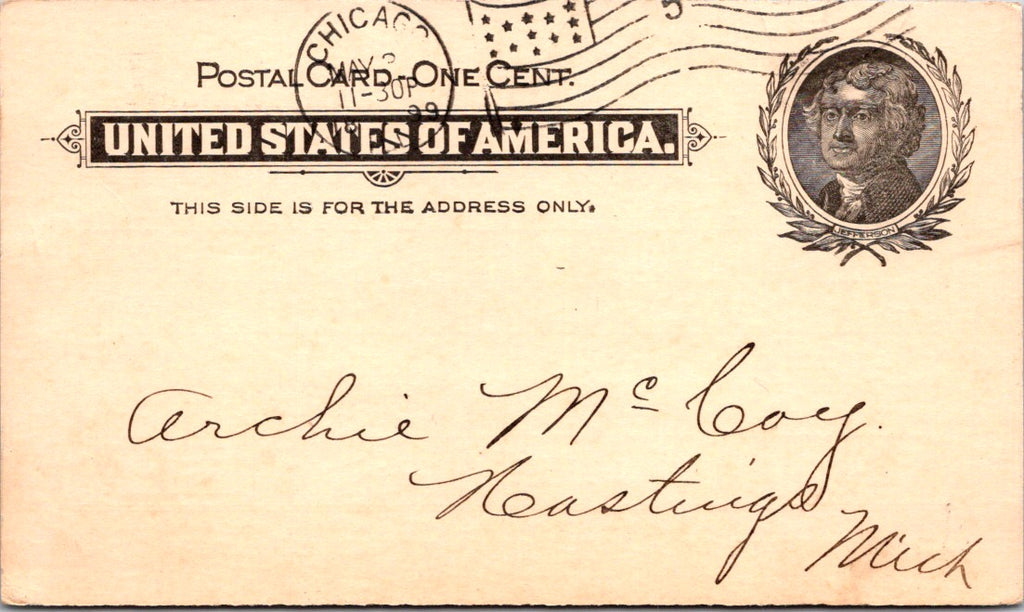 CHICAGO
MAY
11-30P
99
5
POSTAL CARD - ONE CENT.
UNITED STATES OF AMERICA.
THIS SIDE IS FOR THE ADDRESS ONLY.
JEFFERSON
Archie Mc Coy.
Hastings
Mich